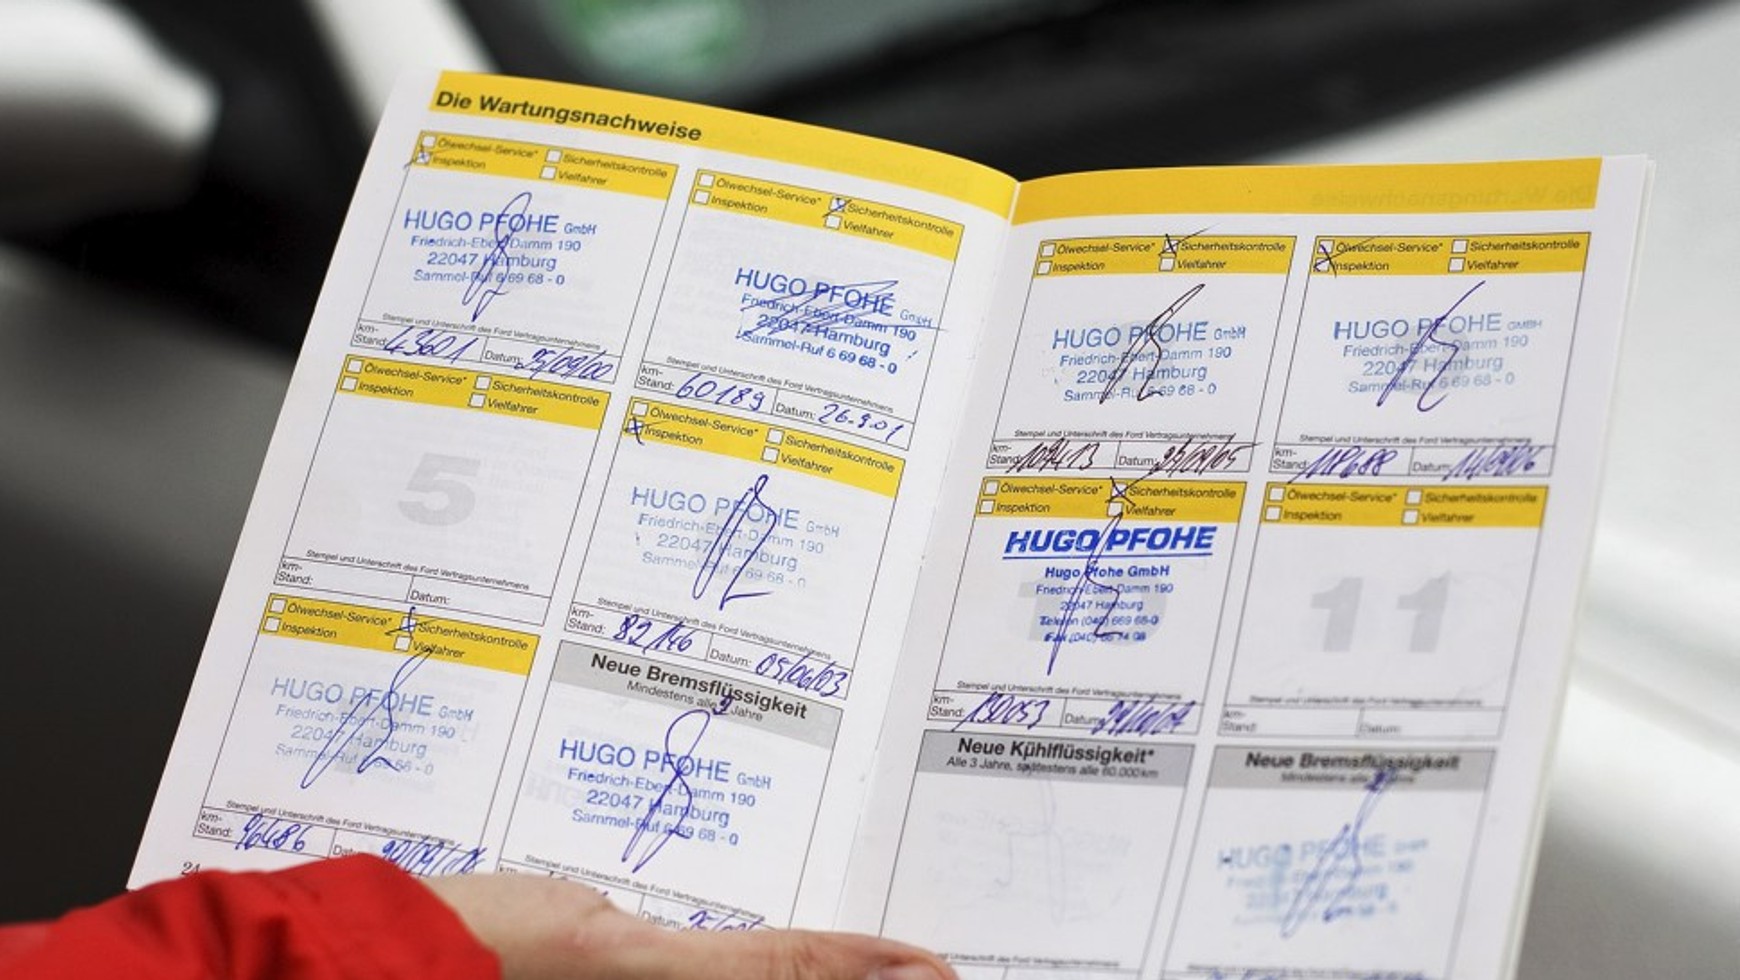 Die Wartungsnachweise
Ölwechsel-Service* Sicherheitskontrolle
Inspektion Vielfahrer
HUGO PFOHE GmbH
Friedrich-Ebert-Damm 190
22047 Hamburg
Sammel-Ruf 6 69 68 - 0
Stempel und Unterschrift des Ford Vertragsunternehmens
km-
Stand: 43601 Datum: 25/09/00
Ölwechsel-Service* Sicherheitskontrolle
Inspektion Vielfahrer
HUGO PFOHE GmbH
Friedrich-Ebert-Damm 190
22047 Hamburg
Sammel-Ruf 6 69 68 - 0
Stempel und Unterschrift des Ford Vertragsunternehmens
km-
Stand: 60189 Datum: 26.9.01
Ölwechsel-Service* Sicherheitskontrolle
Inspektion Vielfahrer
5
Stempel und Unterschrift des Ford Vertragsunternehmens
km-
Stand: Datum:
Ölwechsel-Service* Sicherheitskontrolle
Inspektion Vielfahrer
HUGO PFOHE GmbH
Friedrich-Ebert-Damm 190
22047 Hamburg
Sammel-Ruf 6 69 68 - 0
Stempel und Unterschrift des Ford Vertragsunternehmens
km-
Stand: 82146 Datum: 05/06/03
Ölwechsel-Service* Sicherheitskontrolle
Inspektion Vielfahrer
HUGO PFOHE GmbH
Friedrich-Ebert-Damm 190
22047 Hamburg
Sammel-Ruf 6 69 68 - 0
Stempel und Unterschrift des Ford Vertragsunternehmens
km-
Stand: 96486
24
Neue Bremsflüssigkeit
Mindestens alle 2 Jahre
HUGO PFOHE GmbH
Friedrich-Ebert-Damm 190
22047 Hamburg
Sammel-Ruf 6 69 68 - 0
Stempel und Unterschrift des Ford Vertragsunternehmens
km-
Datum:
Ölwechsel-Service* Sicherheitskontrolle
Inspektion Vielfahrer
HUGO PFOHE GmbH
Friedrich-Ebert-Damm 190
22047 Hamburg
Sammel-Ruf 6 69 68 - 0
Stempel und Unterschrift des Ford Vertragsunternehmens
km-
Stand: 109413 Datum:
Ölwechsel-Service* Sicherheitskontrolle
Inspektion Vielfahrer
HUGO PFOHE GMBH
Friedrich-Ebert-Damm 190
22047 Hamburg
Sammel-Ruf 6 69 68 - 0
Stempel und Unterschrift des Ford Vertragsunternehmens
km-
Stand: 118688 Datum:
Ölwechsel-Service* Sicherheitskontrolle
Inspektion Vielfahrer
HUGO PFOHE
Hugo Pfohe GmbH
Friedrich-Ebert-Damm 190
22047 Hamburg
Telefon (040) 669 68-0
Fax (040)
Stempel und Unterschrift des Ford Vertragsunternehmens
km-
Stand: 130053 Datum:
Ölwechsel-Service* Sicherheitskontrolle
Inspektion Vielfahrer
11
Stempel und Unterschrift des Ford Vertragsunternehmens
km-
Stand: Datum:
Neue Kühlflüssigkeit*
Alle 3 Jahre, spätestens alle 60.000 km
Neue Bremsflüssigkeit
Mindestens alle 2 Jahre
HUGO PFOHE GmbH
Friedrich-Ebert-Damm 190
22047 Hamburg